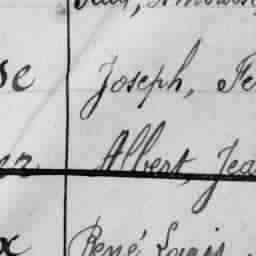 se Joseph, Fe
er Albert, Jea
x René Louis